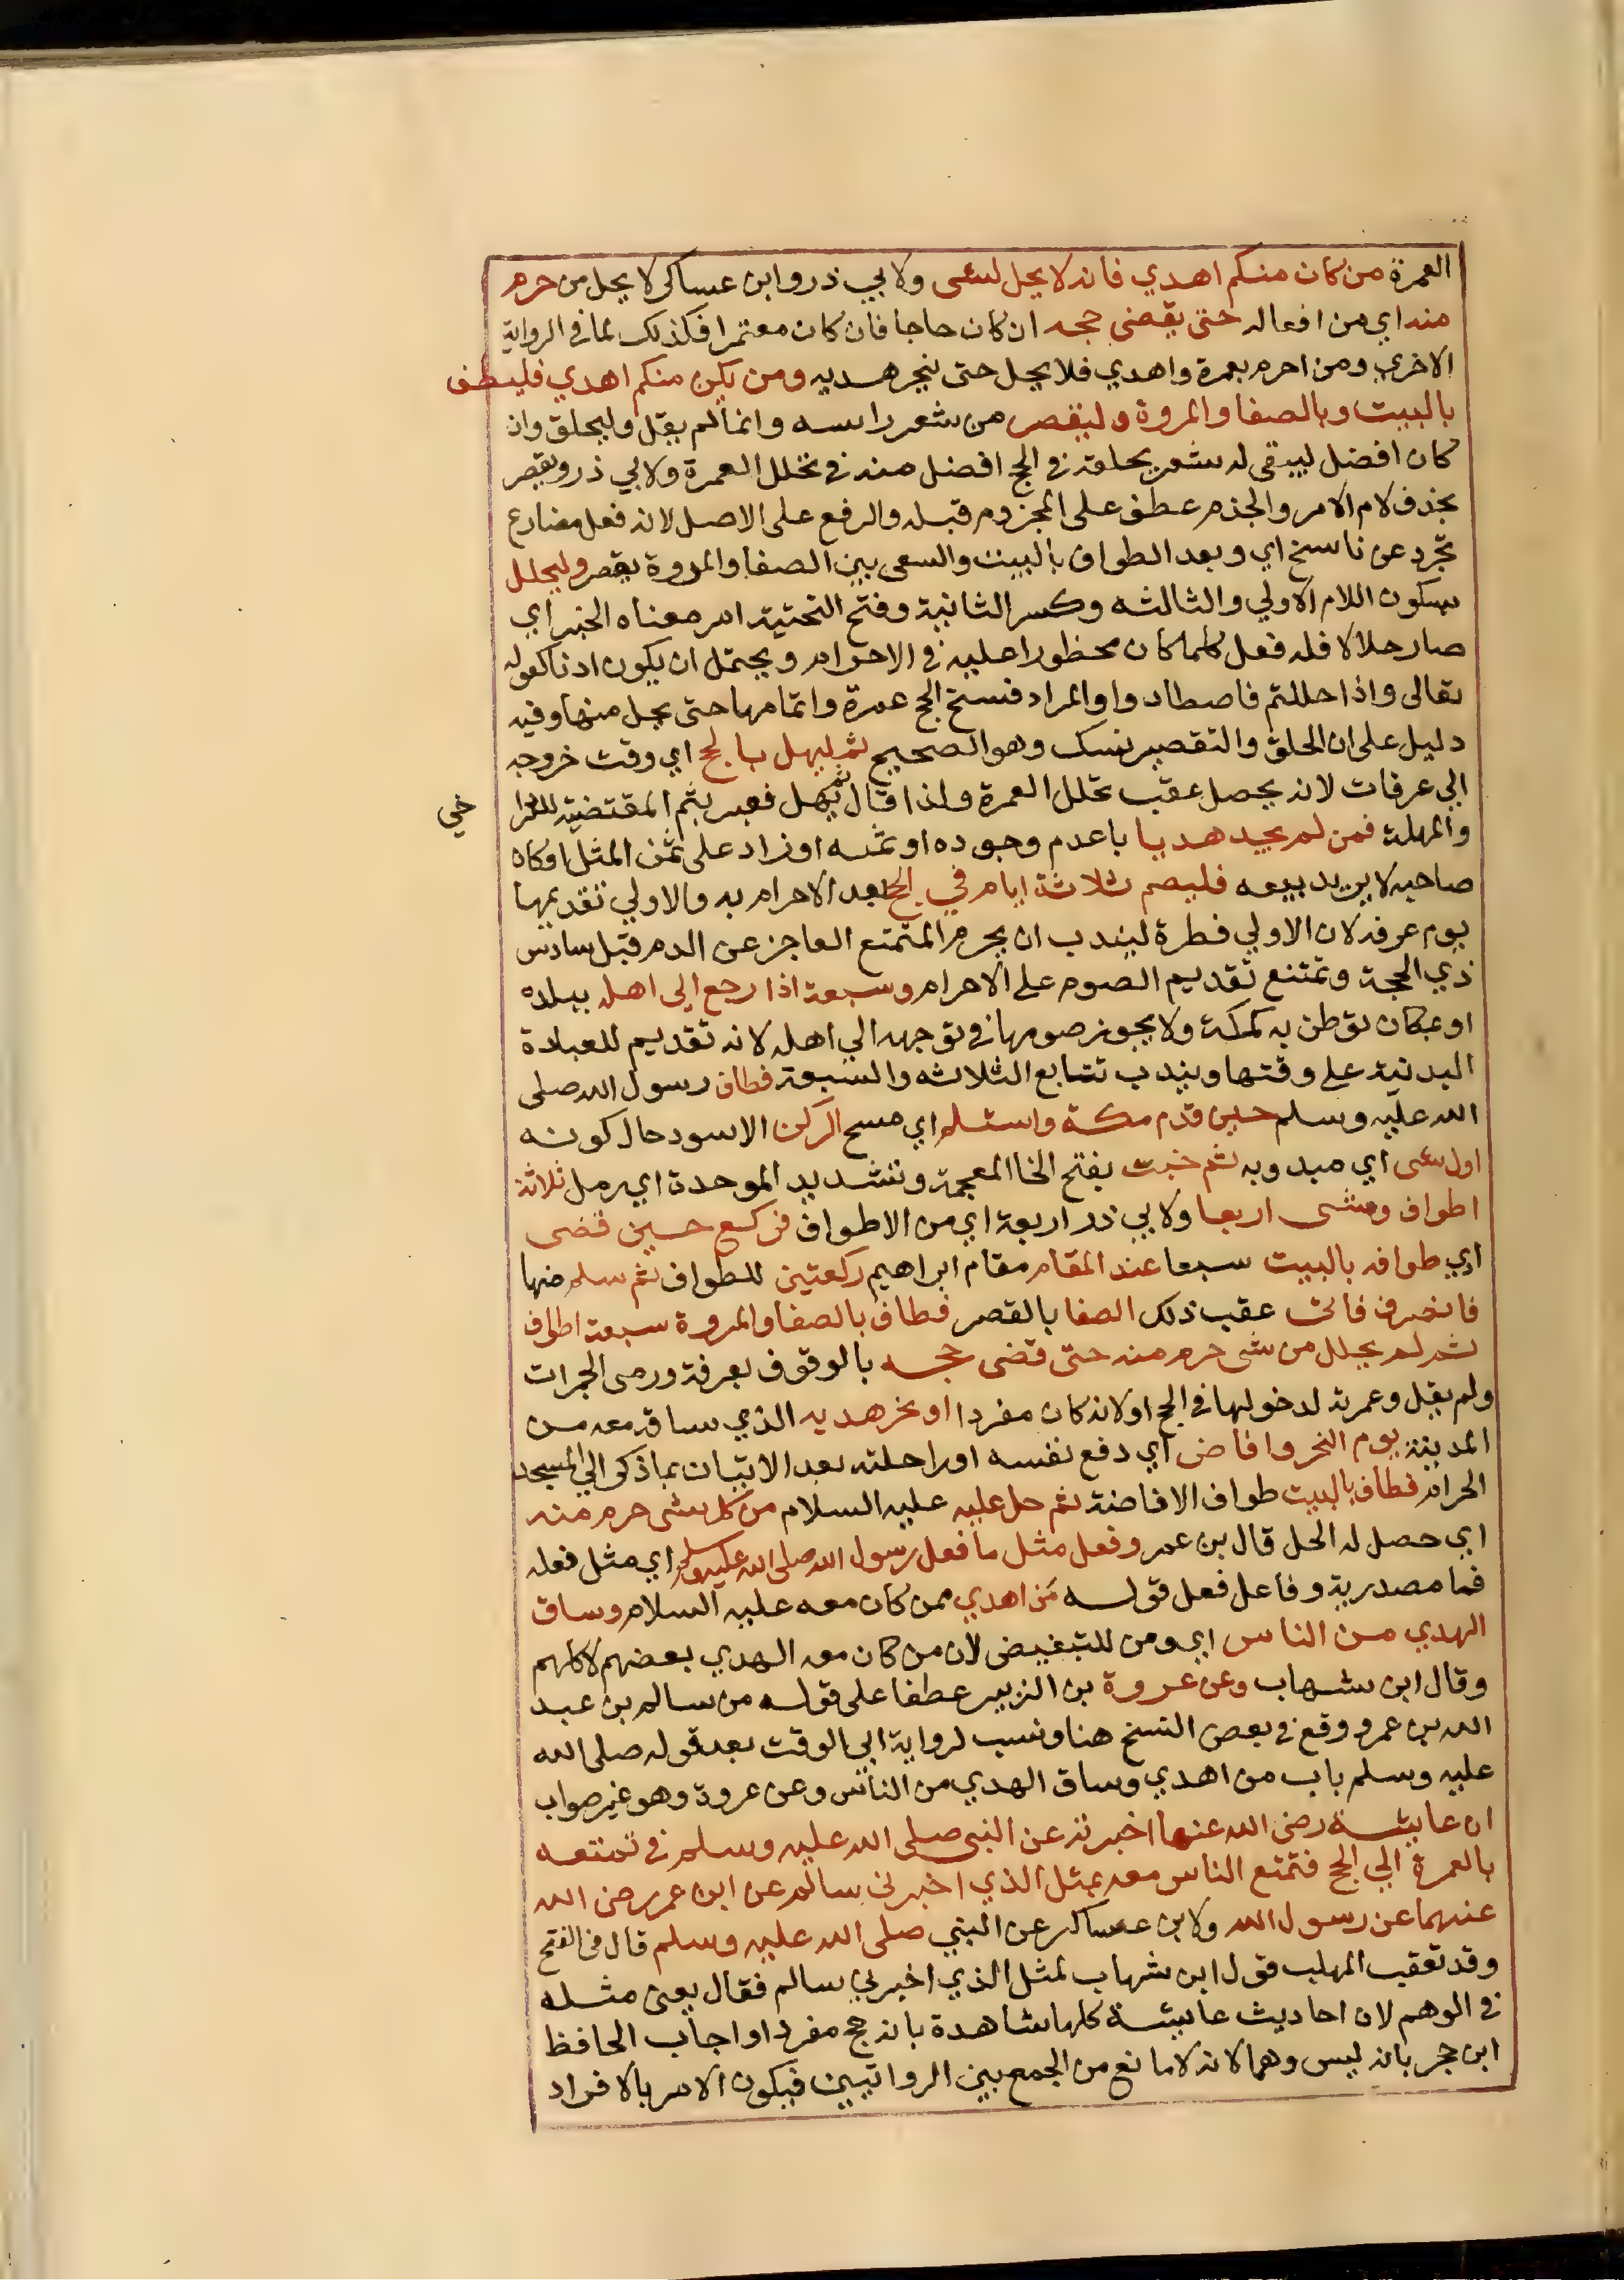 العمرة من كان منكم اهدي فانه لا يحل لشى ولابي ذر وابن عساكر لا يحل من حرم
منه اي من افعاله حتى يقضي حجه ان كان حاجا فان كان معتمرا فكذلك لما في الرواية
الاخري ومن احرم بعمرة واهدي فلا يحل حتى ينحر هديه ومن يكن منكم اهدي فليطف
بالبيت وبالصفا والمروة وليقصر من شعر راسه وانما لم يقل وليحلق وان
كان افضل ليبقى له شعر يحلقه في الحج افضل منه في تحلل العمرة ولابي ذر ويقصر
بحذف لام الامر والجذم عطف على المجزوم قبله والرفع على الاصل لانه فعل مضارع
تجرد عن ناسخ اي وبعد الطواف بالبيت والسعى بين الصفا والمروة يقصر وليحلل
بسكون اللام الاولي والثالثه وكسر الثانية وفتح التحتية امر معناه الخبر اي
صار حلالا فله فعل كلما كان محظورا عليه في الاحرام ويحتمل ان يكون اذنا كقوله
تعالى واذا حللتم فاصطادوا والمراد فسخ الحج عمرة واتمامها حتى يحل منها وفيه
دليل على ان الحلق والتقصير نسك وهو الصحيح ثم ليهل بالحج اي وقت خروجه
الى عرفات لانه يحصل عقب تحلل العمرة ولذا قال ثم يهل فعبر بثم المقتضية للترا
خي
والمهلة فمن لم يجد هديا باعدم وجوده او ثمنه او زاد على ثمن المثل او كان
صاحبه لا يريد بيعه فليصم ثلاثة ايام في الحج بعد الاحرام به والاولي تقديمها
يوم عرفه لان الاولي فطرة ليندب ان يحرم المتمتع العاجز عن الدم قبل سادس
ذي الحجة وتمتنع تقديم الصوم على الاحرام وسبعة اذا رجع الى اهله ببلده
او بمكان توطن به كمكة ولا يجوز صومها في توجهه الى اهله لانه تقديم للعبادة
البدنية على وقتها ويندب تتابع الثلاثه والسبعة فطاف رسول الله صلى
الله عليه وسلم حين قدم مكة واستلم اي مسح الركن الاسود حال كونه
اول شى اي مبدوبه ثم خبت بفتح الخا المعجمة وتشديد الموحدة اي رمل ثلاثة
اطواف ومشى اربعا ولابي ذر اربعة اي من الاطواف فركع حين قضى
اي طوافه بالبيت سبعا عند المقام مقام ابراهيم ركعتين للطواف ثم سلم منها
فانصرف فاتى عقب ذلك الصفا بالقصر فطاف بالصفا والمروة سبعة اطواف
ثم لم يحلل من شى حرم منه حتى قضى حجه بالوقوف بعرفة ورمى الجمرات
ولم يقل وعمرته لدخولها في الحج او لانه كان مفردا او نحر هديه الذي ساقه معه من
المدينة يوم النحر وافاض اي دفع نفسه او راحلته بعد الاتيان بما ذكر الي المسجد
الحرام فطاف بالبيت طواف الافاضة ثم حل عليه عليه السلام من كل شى حرم منه
اي حصل له الحل قال بن عمر وفعل مثل ما فعل رسول الله صلى الله عليه وسلم اي مثل فعله
فما مصدرية وفاعل فعل قوله من اهدي ممن كان معه عليه السلام وساق
الهدي من الناس اي ومن للتبعيض لان من كان معه الهدي بعضهم لا كلهم
وقال ابن شهاب وعن عروة بن الزبير عطفا على قوله من سالم بن عبد
الله بن عمر ووقع في بعض النسخ هنا ونسب لرواية ابى الوقت بعد قوله صلى الله
عليه وسلم باب من اهدي وساق الهدي من الناس وعن عروة وهو غير صواب
ان عايشة رضى الله عنها اخبرته عن النبى صلى الله عليه وسلم في تمتعه
بالعمرة الي الحج فتمتع الناس معه بمثل الذي اخبرنى سالم عن ابن عمر رضى الله
عنهما عن رسول الله ولابن عساكر عن النبي صلى الله عليه وسلم قال في الفتح
وقد تعقب المهلب قول ابن شهاب لمثل الذي اخبرني سالم فقال يعنى مثله
في الوهم لان احاديث عايشة كلها شاهدة بانه حج مفردا واجاب الحافظ
ابن حجر بانه ليس وهما لانه لا مانع من الجمع بين الرواتيين فيكون الامر بالافراد